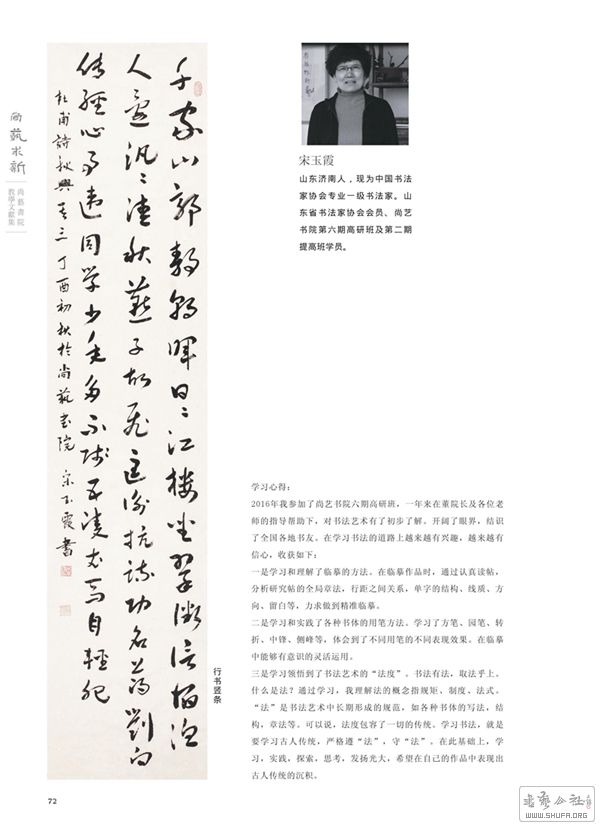 尚藝求新
尚藝書院
教學文獻集
千家山郭靜朝暉日〻江樓坐翠微信宿漁
人還汎〻清秋燕子故飛匡衡抗疏功名薄劉向
傳經心事違同学少年多不賤五陵衣馬自輕肥
杜甫詩秋興其三丁酉初秋於尚藝書院 宋玉霞書
行书竖条
宋玉霞
山东济南人，现为中国书法
家协会专业一级书法家。山
东省书法家协会会员、尚艺
书院第六期高研班及第二期
提高班学员。
学习心得：
2016年我参加了尚艺书院六期高研班，一年来在董院长及各位老
师的指导帮助下，对书法艺术有了初步了解。开阔了眼界，结识
了全国各地书友。在学习书法的道路上越来越有兴趣，越来越有
信心，收获如下：
一是学习和理解了临摹的方法。在临摹作品时，通过认真读帖，
分析研究帖的全局章法，行距之间关系，单字的结构、线质、方
向、留白等，力求做到精准临摹。
二是学习和实践了各种书体的用笔方法。学习了方笔、园笔、转
折、中锋、侧峰等，体会到了不同用笔的不同表现效果。在临摹
中能够有意识的灵活运用。
三是学习领悟到了书法艺术的“法度”。书法有法，取法乎上。
什么是法？通过学习，我理解法的概念指规矩、制度、法式。
“法”是书法艺术中长期形成的规范，如各种书体的写法，结
构，章法等。可以说，法度包容了一切的传统。学习书法，就是
要学习古人传统，严格遵“法”，守“法”。在此基础上，学
习，实践，探索，思考，发扬光大，希望在自己的作品中表现出
古人传统的沉积。
72
書藝公社
WWW.SHUFA.ORG